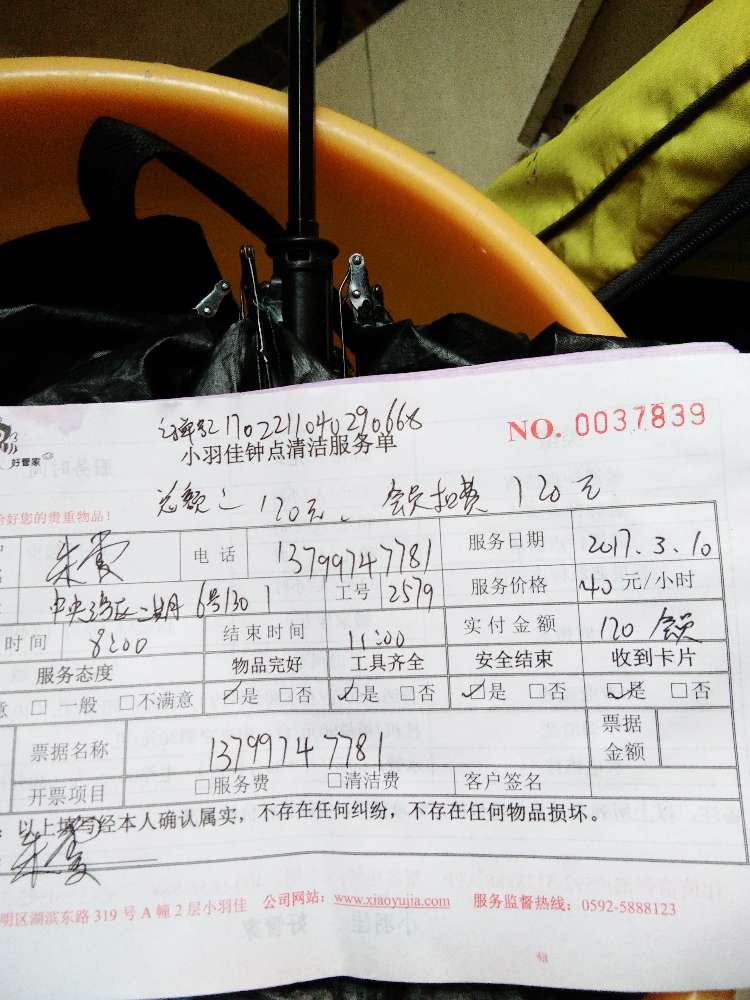 170221104290668
NO. 0037839
好管家
小羽佳钟点清洁服务单
总额：120元、会员扣费120元
好您的贵重物品！
电话 13799747781 服务日期 2017.3.10
6号1301 工号 2579 服务价格 40元/小时
时间 8:00 结束时间 11:00 实付金额 120 会员
服务态度 物品完好 工具齐全 安全结束 收到卡片
意 □ 一般 □不满意 ☑是 □否 ☑是 □否 ☑是 □否 ☑是 □否
票据名称 13799747781 票据金额
开票项目 □服务费 □清洁费 客户签名
：以上填写经本人确认属实，不存在任何纠纷，不存在任何物品损坏。
明区湖滨东路319号A幢2层小羽佳 公司网站：www.xiaoyujia.com 服务监督热线：0592-5888123